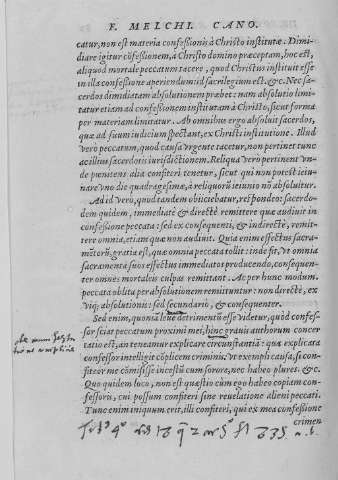 F. MELCHI. CANO.
catur, non est materia confessionis à Christo institutæ. Dimi-
diare igitur cōfessionem, à Christo domino præceptam, hoc est,
aliquod mortale peccatum tacere, quod Christus instituit esse
in illa confessione aperiendum id sacrilegium est. &c. Nec sa-
cerdos dimidiatam absolutionem præbet: nam absolutio limi-
tatur etiam ad confessionem institutam à Christo, sicut forma
per materiam limitatur. Ab omnibus ergo absoluit sacerdos,
quæ ad suum iudicium spectant, ex Christi institutione. Illud
vero peccatum, quod causa vrgente tacetur, non pertinet tunc
ac illius sacerdotis iurisdictionem. Reliqua vero pertinent vn-
de pœnitens alia confiteri tenetur, sicut qui non potest ieiu-
nare vno die quadragesimæ, à reliquorū ieiunio nō absoluitur.
Ad id vero, quod tandem obiiciebatur, respōdeo: sacerdo-
dem quidem, immediatè & directè remittere quæ audiuit in
confessione peccata: sed ex consequenti, & indirectè, remit-
tere omnia, etiam quæ non audiuit. Quia enim effectus sacra-
mētorū, gratia est, quæ omnia peccata tollit: inde fit, vt omnia
sacramenta suos effectus immediatos producendo, consequen-
ter omnes mortales culpas remittant. Ac per hunc modum,
peccata oblita per absolutionem remittuntur: non directè, ex
viq; absolutionis: sed secundario, & consequenter.
Sed enim, quoniā leue detrimentū esse videtur, quòd confes-
sor sciat peccatum proximi mei, hinc grauis authorum concer
tatio est, an teneamur explicare circunstantiā: qua explicata
confessor intelligit cōplicem criminis. vt exempli causa, si con-
fiteor me cōmisisse incestū cum sorore, nec habeo plures. &c.
Quo quidem loco, non est quæstio cùm ego habeo copiam con-
fessoris, cui possum confiteri sine reuelatione alieni peccati.
Tunc enim iniquum erit, illi confiteri, qui ex mea confessione
crimen